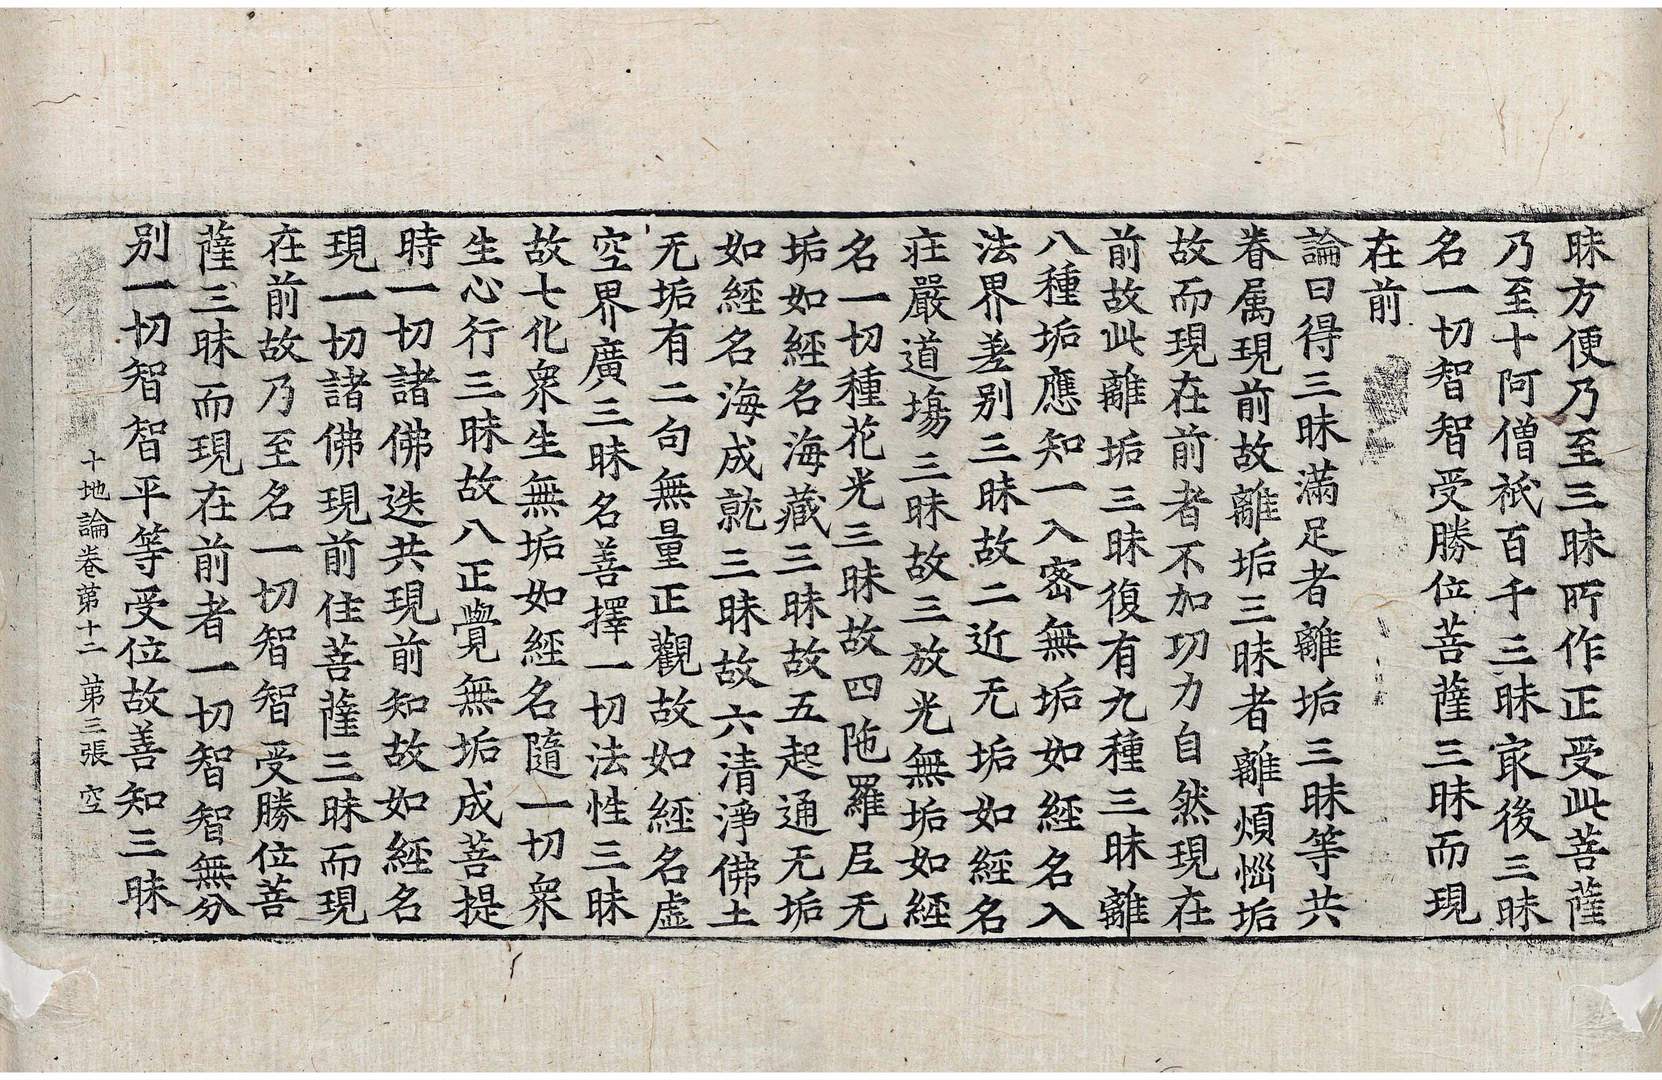 昧方便乃至三昧所作正受此菩薩
乃至十阿僧祇百千三昧㝡後三昧
名一切智智受勝位菩薩三昧而現
在前
論曰得三昧滿足者離垢三昧等共
眷属現前故離垢三昧者離煩惱垢
故而現在前者不加功力自然現在
前故此離垢三昧復有九種三昧離
八種垢應知一入密無垢如經名入
法界差别三昧故二近无垢如經名
莊嚴道塲三昧故三放光無垢如經
名一切種花光三昧故四陁羅尼无
垢如經名海藏三昧故五起通无垢
如經名海成就三昧故六清淨佛土
无垢有二句無量正觀故如經名虛
空界廣三昧名善擇一切法性三昧
故七化衆生無垢如經名隨一切衆
生心行三昧故八正覺無垢成菩提
時一切諸佛迭共現前知故如經名
現一切諸佛現前住菩薩三昧而現
在前故乃至名一切智智受勝位菩
薩三昧而現在前者一切智智無分
别一切智智平等受位故善知三昧
十地論卷第十二 第三張 空